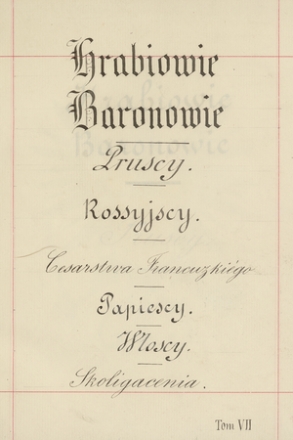 Hrabiowie
Baronowie
Pruscy.
Rossyjscy.
Cesarstwa Francuzkiégo
Papiescy.
Włoscy.
Skoligacenia.
Tom VII